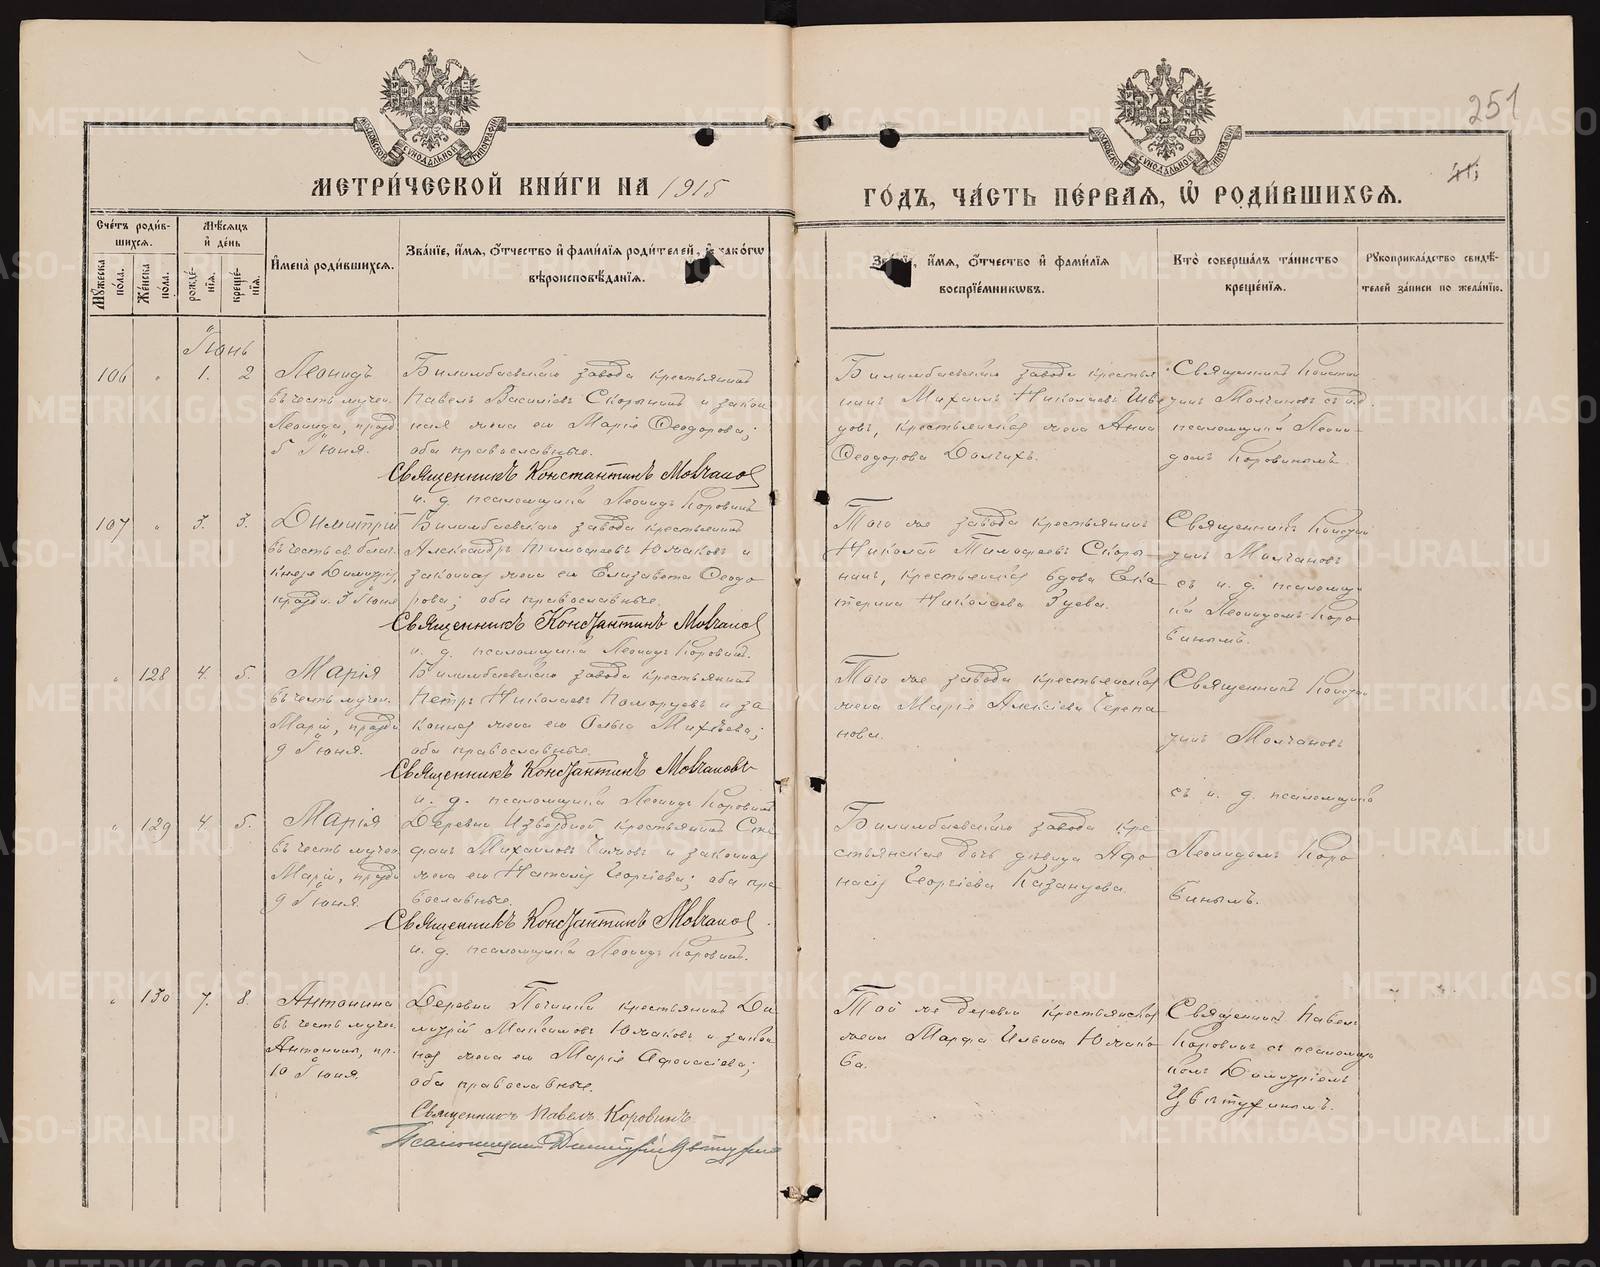 251
41
МОСКОВСКОЙ СѴНОДАЛЬНОЙ ТИПОГРАФІИ
МОСКОВСКОЙ СѴНОДАЛЬНОЙ ТИПОГРАФІИ
МЕТРИ́ЧЕСКОЙ КНИ́ГИ НА 1915 ГО́ДЪ, ЧА́СТЬ ПЕ́РВАЯ, Ѡ҆ РОДИ́ВШИХСЯ.
Сче́тъ роди́в-
шихся.
Мѣ́сяцъ
и҆ де́нь
Му́жеска
по́ла.
Же́нска
по́ла.
рожде́-
нія.
креще́-
нія.
И҆мена̀ роди́вшихся.
Зва́ніе, и҆́мя, о҆́тчество и҆ фами́лія роди́телей, и҆ како́гѡ
вѣроисповѣ́данія.
Зва́ніе, и҆́мя, о҆́тчество и҆ фами́лія
воспріе́мникѡвъ.
Кто̀ соверша́лъ та́инство
креще́нія.
Рукоприкла́дство свидѣ́-
телей за́писи по жела́нію.
Іюнь
106 " 1. 2
Леонидъ
въ честь мучен.
Леонида, празд.
5 Іюня.
Билимбаевскаго завода крестьянинъ
Павелъ Василіевъ Скорынинъ и закон
ная жена его Марія Ѳеодорова;
оба православные.
Священникъ Константинъ Молчановъ
и. д. псаломщика Леонидъ Коровинъ
Билимбаевскаго завода крестья
нинъ Михаилъ Николаевъ Шве
цовъ, крестьянская жена Анна
Ѳеодорова Долгихъ.
Священникъ Констан
тинъ Молчановъ съ и.д.
псаломщика Леони-
домъ Коровинымъ.
107 " 3. 3.
Димитрій
въ честь св. благ.
князя Димитрія,
праздн. 3 Іюня
Билимбаевскаго завода крестьянинъ
Александръ Тимофеевъ Южаковъ и
законная жена его Елизавета Ѳеодо-
рова; оба православные.
Священникъ Константинъ Молчановъ
и. д. псаломщика Леонидъ Коровинъ.
Того же завода крестьянинъ
Николай Тимофеевъ Скоры-
нинъ, крестьянская вдова Ека
терина Николаева Зуева.
Священникъ Констан
тинъ Молчановъ
съ и. д. псаломщи
ка Леонидомъ Коро
винымъ.
" 128 4. 5.
Марія
въ честь мучен.
Маріи, праздн
9 Іюня.
Билимбаевскаго завода крестьянинъ
Петръ Николаевъ Поморцевъ и за
конная жена его Ольга Михѣева;
оба православные.
Священникъ Константинъ Молчановъ
и. д. псаломщика Леонидъ Коровинъ
Того же завода крестьянская
жена Марія Алексіева Черепа
нова.
Священникъ Констан
тинъ Молчановъ
съ и. д. псаломщика
Леонидомъ Коро
винымъ.
" 129 4. 5.
Марія
въ честь мучен.
Маріи, праздн
9 Іюня.
Деревни Извездной крестьянинъ Сте
фанъ Михаиловъ и законная
жена его Наталія Георгіева; оба пра
вославные.
Священникъ Константинъ Молчановъ
и. д. псаломщика Леонидъ Коровинъ.
Билимбаевскаго завода кре
стьянская дочь дѣвица Афа
насія Георгіева Казанцева.
" 130 7. 8.
Антонина
въ честь мучен.
Антонины, пр.
10 Іюня.
Деревни Починка крестьянинъ Ди
митрій Максимовъ Южаковъ и закон
ная жена его Марія Афанасіева;
оба православные.
Священникъ Павелъ Коровинъ
Псаломщикъ Димитрій Цвѣтухинъ
Той же деревни крестьянская
жена Марфа Ильина Южако
ва.
Священникъ Павелъ
Коровинъ съ псаломщи
комъ Димитріемъ
Цвѣтухинымъ.
METRIKI.GASO-URAL.RU